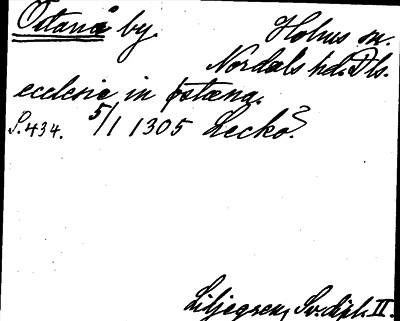 Östanå by. Holms sn.
Nordals hd. Dls.
ecclesie in østæna.
S. 434. 5/1 1305 Leckö?
Liljegren, Sv. dipl. II.